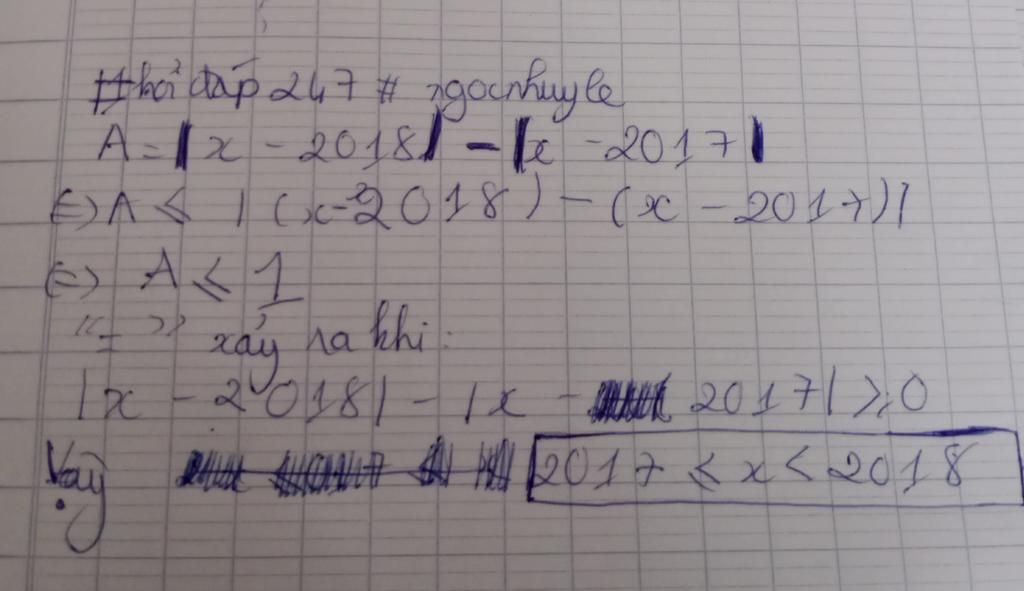 #hỏi đáp 247 # ngocnhuyle
A = |x - 2018| - |x - 2017|
(=) A ≤ |(x - 2018) - (x - 2017)|
(=) A ≤ 1
"=" xảy ra khi:
|x - 2018| - |x - 2017| ≥ 0
Vậy 2017 ≤ x < 2018